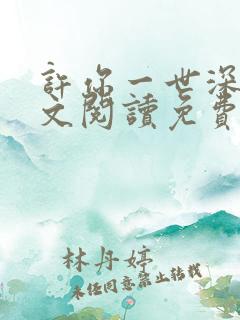 許你一世深
文閱讀免費
林丹婷
未經同意禁止轉載